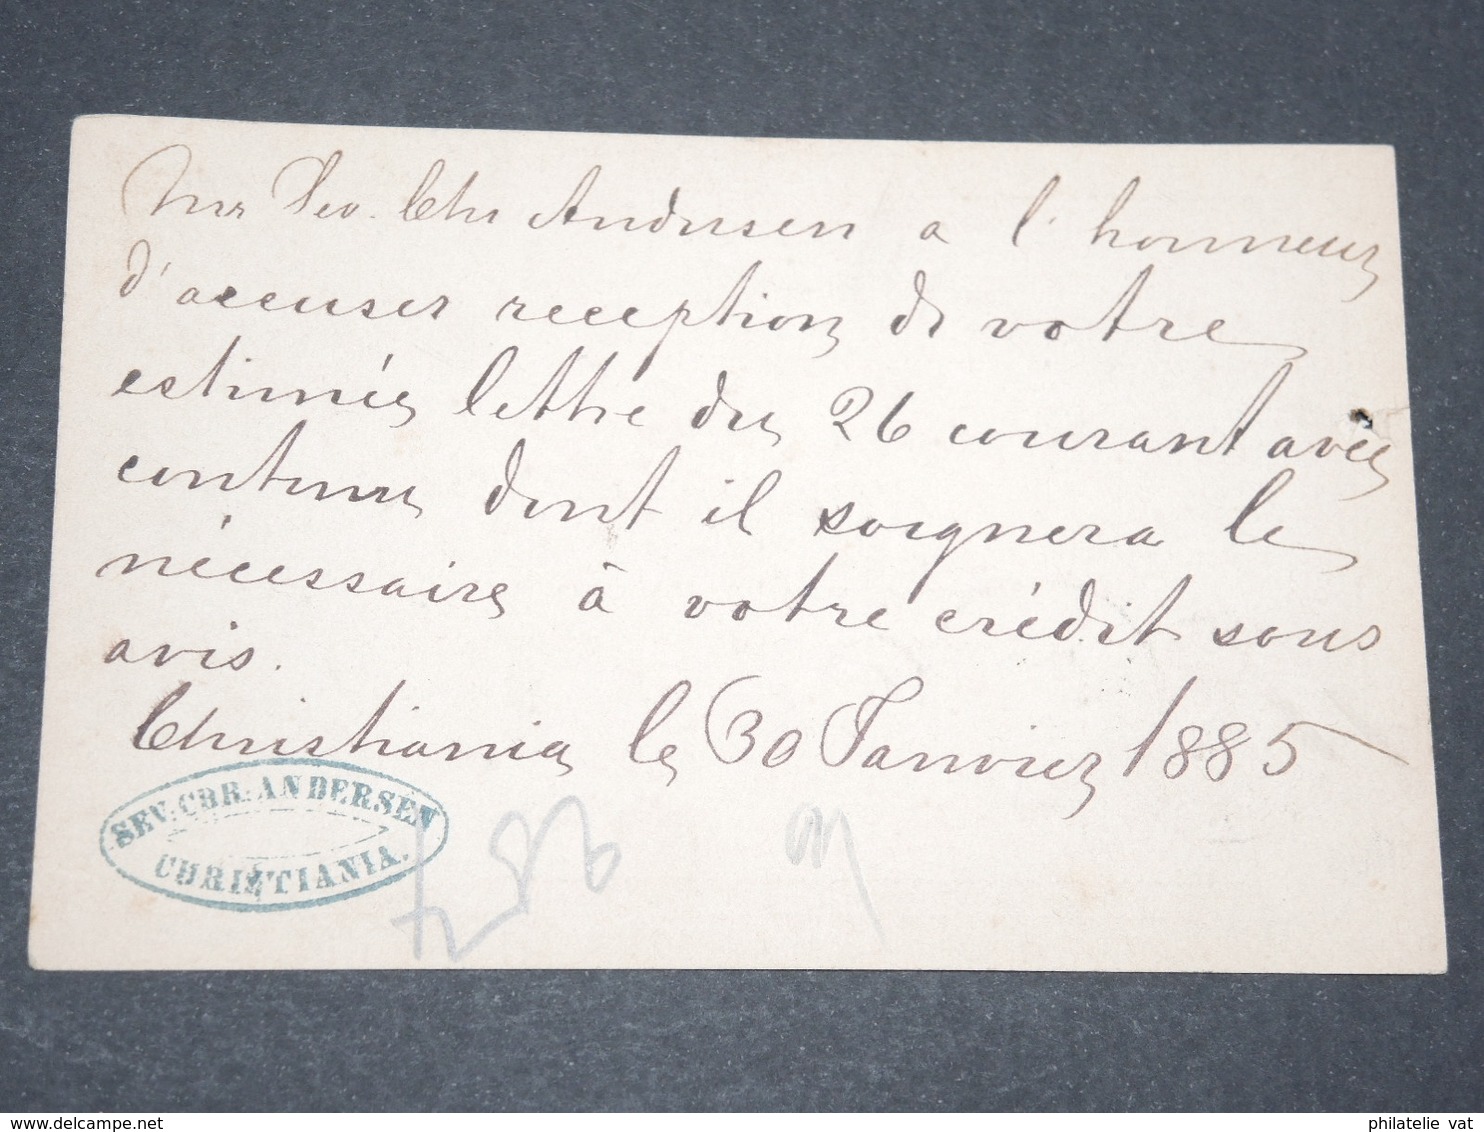 Mr Sev. Chr Andersen a l'honneur
d'accuser reception de votre
estimée lettre du 26 courant avec
contenu dont il soignera le
nécessaire à votre crédit sous
avis.
Christiania le 30 Janvier 1885
SEV. CHR. ANDERSEN
CHRISTIANIA.
delcampe.net
philatelie vat